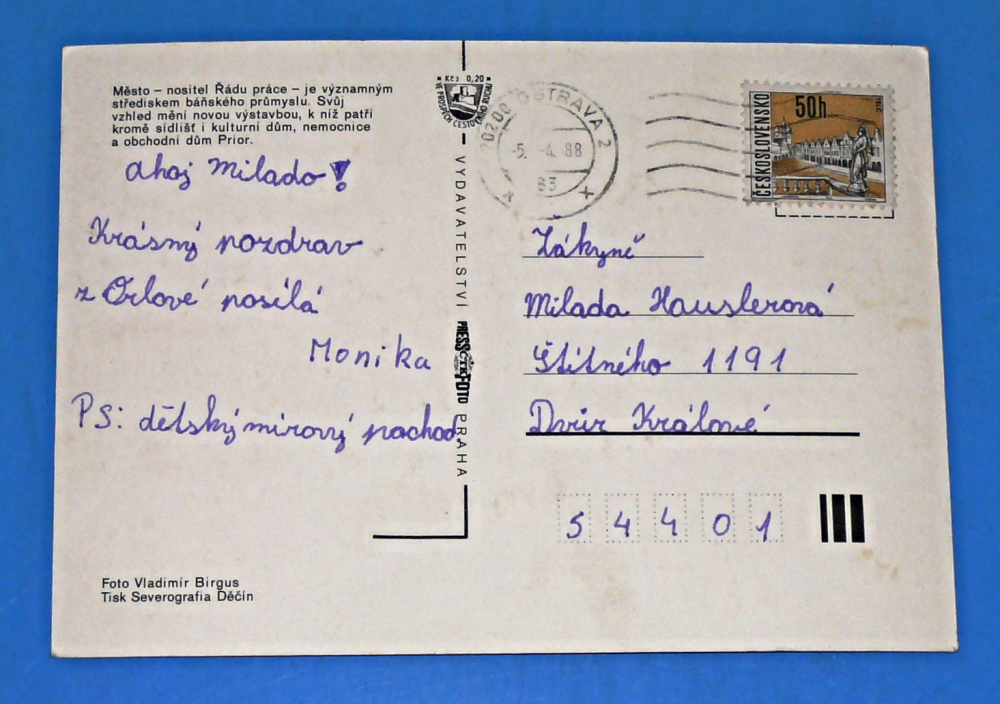 Město – nositel Řádu práce – je významným
střediskem báňského průmyslu. Svůj
vzhled mění novou výstavbou, k níž patří
kromě sídlišť i kulturní dům, nemocnice
a obchodní dům Prior.
Ahoj Milado!
Krásný pozdrav
z Orlové posílá
Monika
PS: dětský mírový pochod
Foto Vladimír Birgus
Tisk Severografia Děčín
Kčs 0,20
VE PROSPĚCH CESTOVNÍHO RUCHU
VYDAVATELSTVÍ PRESSFOTO PRAHA
ČTK
702 00 OSTRAVA 2
-5. -4. 88
ČESKOSLOVENSKO
50h
TELČ
Žákyně
Milada Hauslerová
Štítného 1191
Dvůr Králové
54401